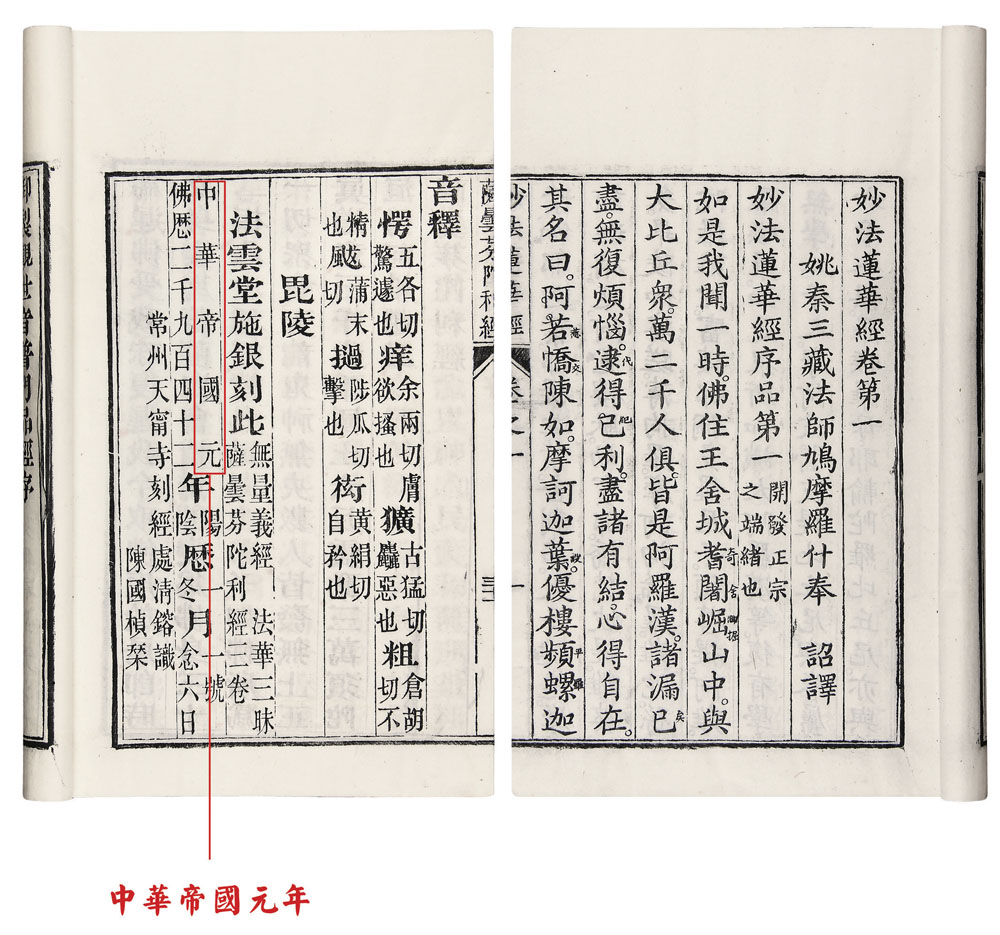 妙法蓮華經卷第一
姚秦三藏法師鳩摩羅什奉 詔譯
妙法蓮華經序品第一 開發正宗之端緒也
如是我聞一時。佛住王舍城耆闍崛山中。與
大比丘衆。萬二千人俱。皆是阿羅漢。諸漏已
盡。無復煩惱。逮得己利。盡諸有結。心得自在。
其名曰。阿若憍陳如。摩訶迦葉。優樓頻螺迦
妙法蓮華經 卷之一 一
薩曇芬陀利經
音釋
愕五各切驚遽也 痒余兩切膚欲搔也 獷古猛切麤惡也 粗倉胡切不
精也 撾陟瓜切擊也 衒黄絹切自矜也
毘陵
法雲堂施銀刻此 無量義經 法華三昧 薩曇芬陀利經三卷
中華帝國元年陽歷一月一號
佛歷二千九百四十二年陰歷冬月念六日
常州天甯寺刻經處清鎔識
陳國楨琹
御製觀世音普門品經序
中華帝國元年